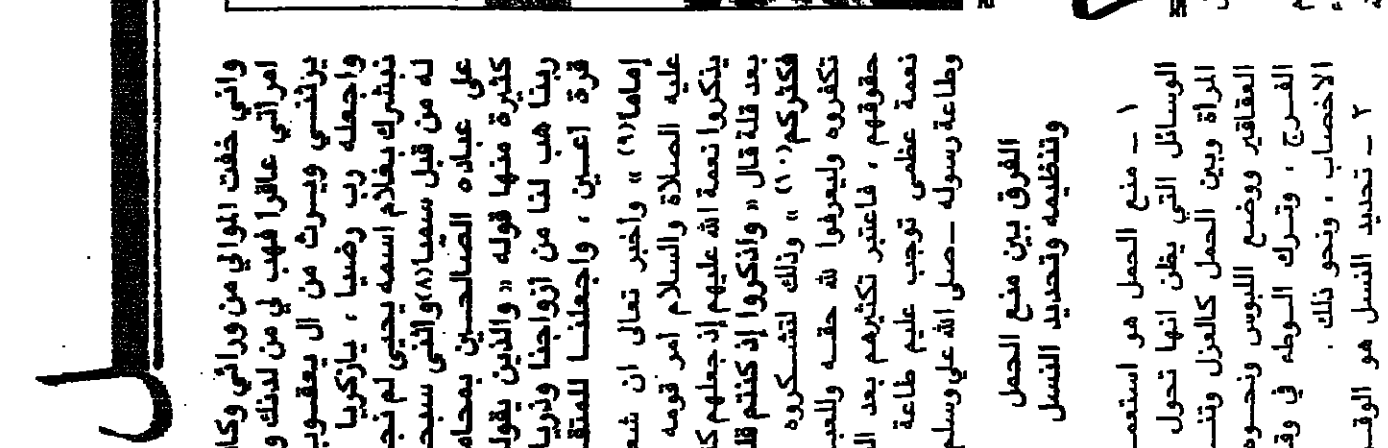 واني خفت الموالي من ورائي وكا
امرأتي عاقرا فهب لي من لدنك و
يرثنـي ويـرث من آل يعقـوب
واجعله رب رضيا ، يازكريا
نبشرك بغلام اسمه يحيى لم نجـ
له من قبل سميا(٨)واثنى سبحـ
على عباده الصالحـين بمحامـ
كثيرة منها قوله « والذين يقولـ
ربنا هب لنا من أزواجنا وذريا
قرة أعـين ، واجعلنـا للمتقـ
إماما(٩) » وأخبر تعالى ان شعـ
عليه الصلاة والسلام أمر قومه
يذكروا نعمة الله عليهم إذ جعلهم كـ
بعد قلة قال « واذكروا إذ كنتم قلـ
فكثركم(١٠) » وذلك لتشـكروه
تكفروه وليعرفوا لله حقـه وللعبـ
حقوقهم ، فاعتبر تكثيرهم بعد الـ
نعمة عظمى توجب عليهم طاعة
وطاعة رسوله ـ صلى الله عليه وسلم
الفرق بين منع الحمل
وتنظيمه وتحديد النسل
١ ـ منع الحمل هو استعمـ
الوسائل التي يظن انها تحول
المرأة وبين الحمل كالعزل وتنـ
العقاقير ووضع اللبوس ونحـوه
الفـرج ، وتـرك الـوطء في وقـ
الاخصاب ، ونحو ذلك .
٢ ـ تحديد النسل هو الوقـ